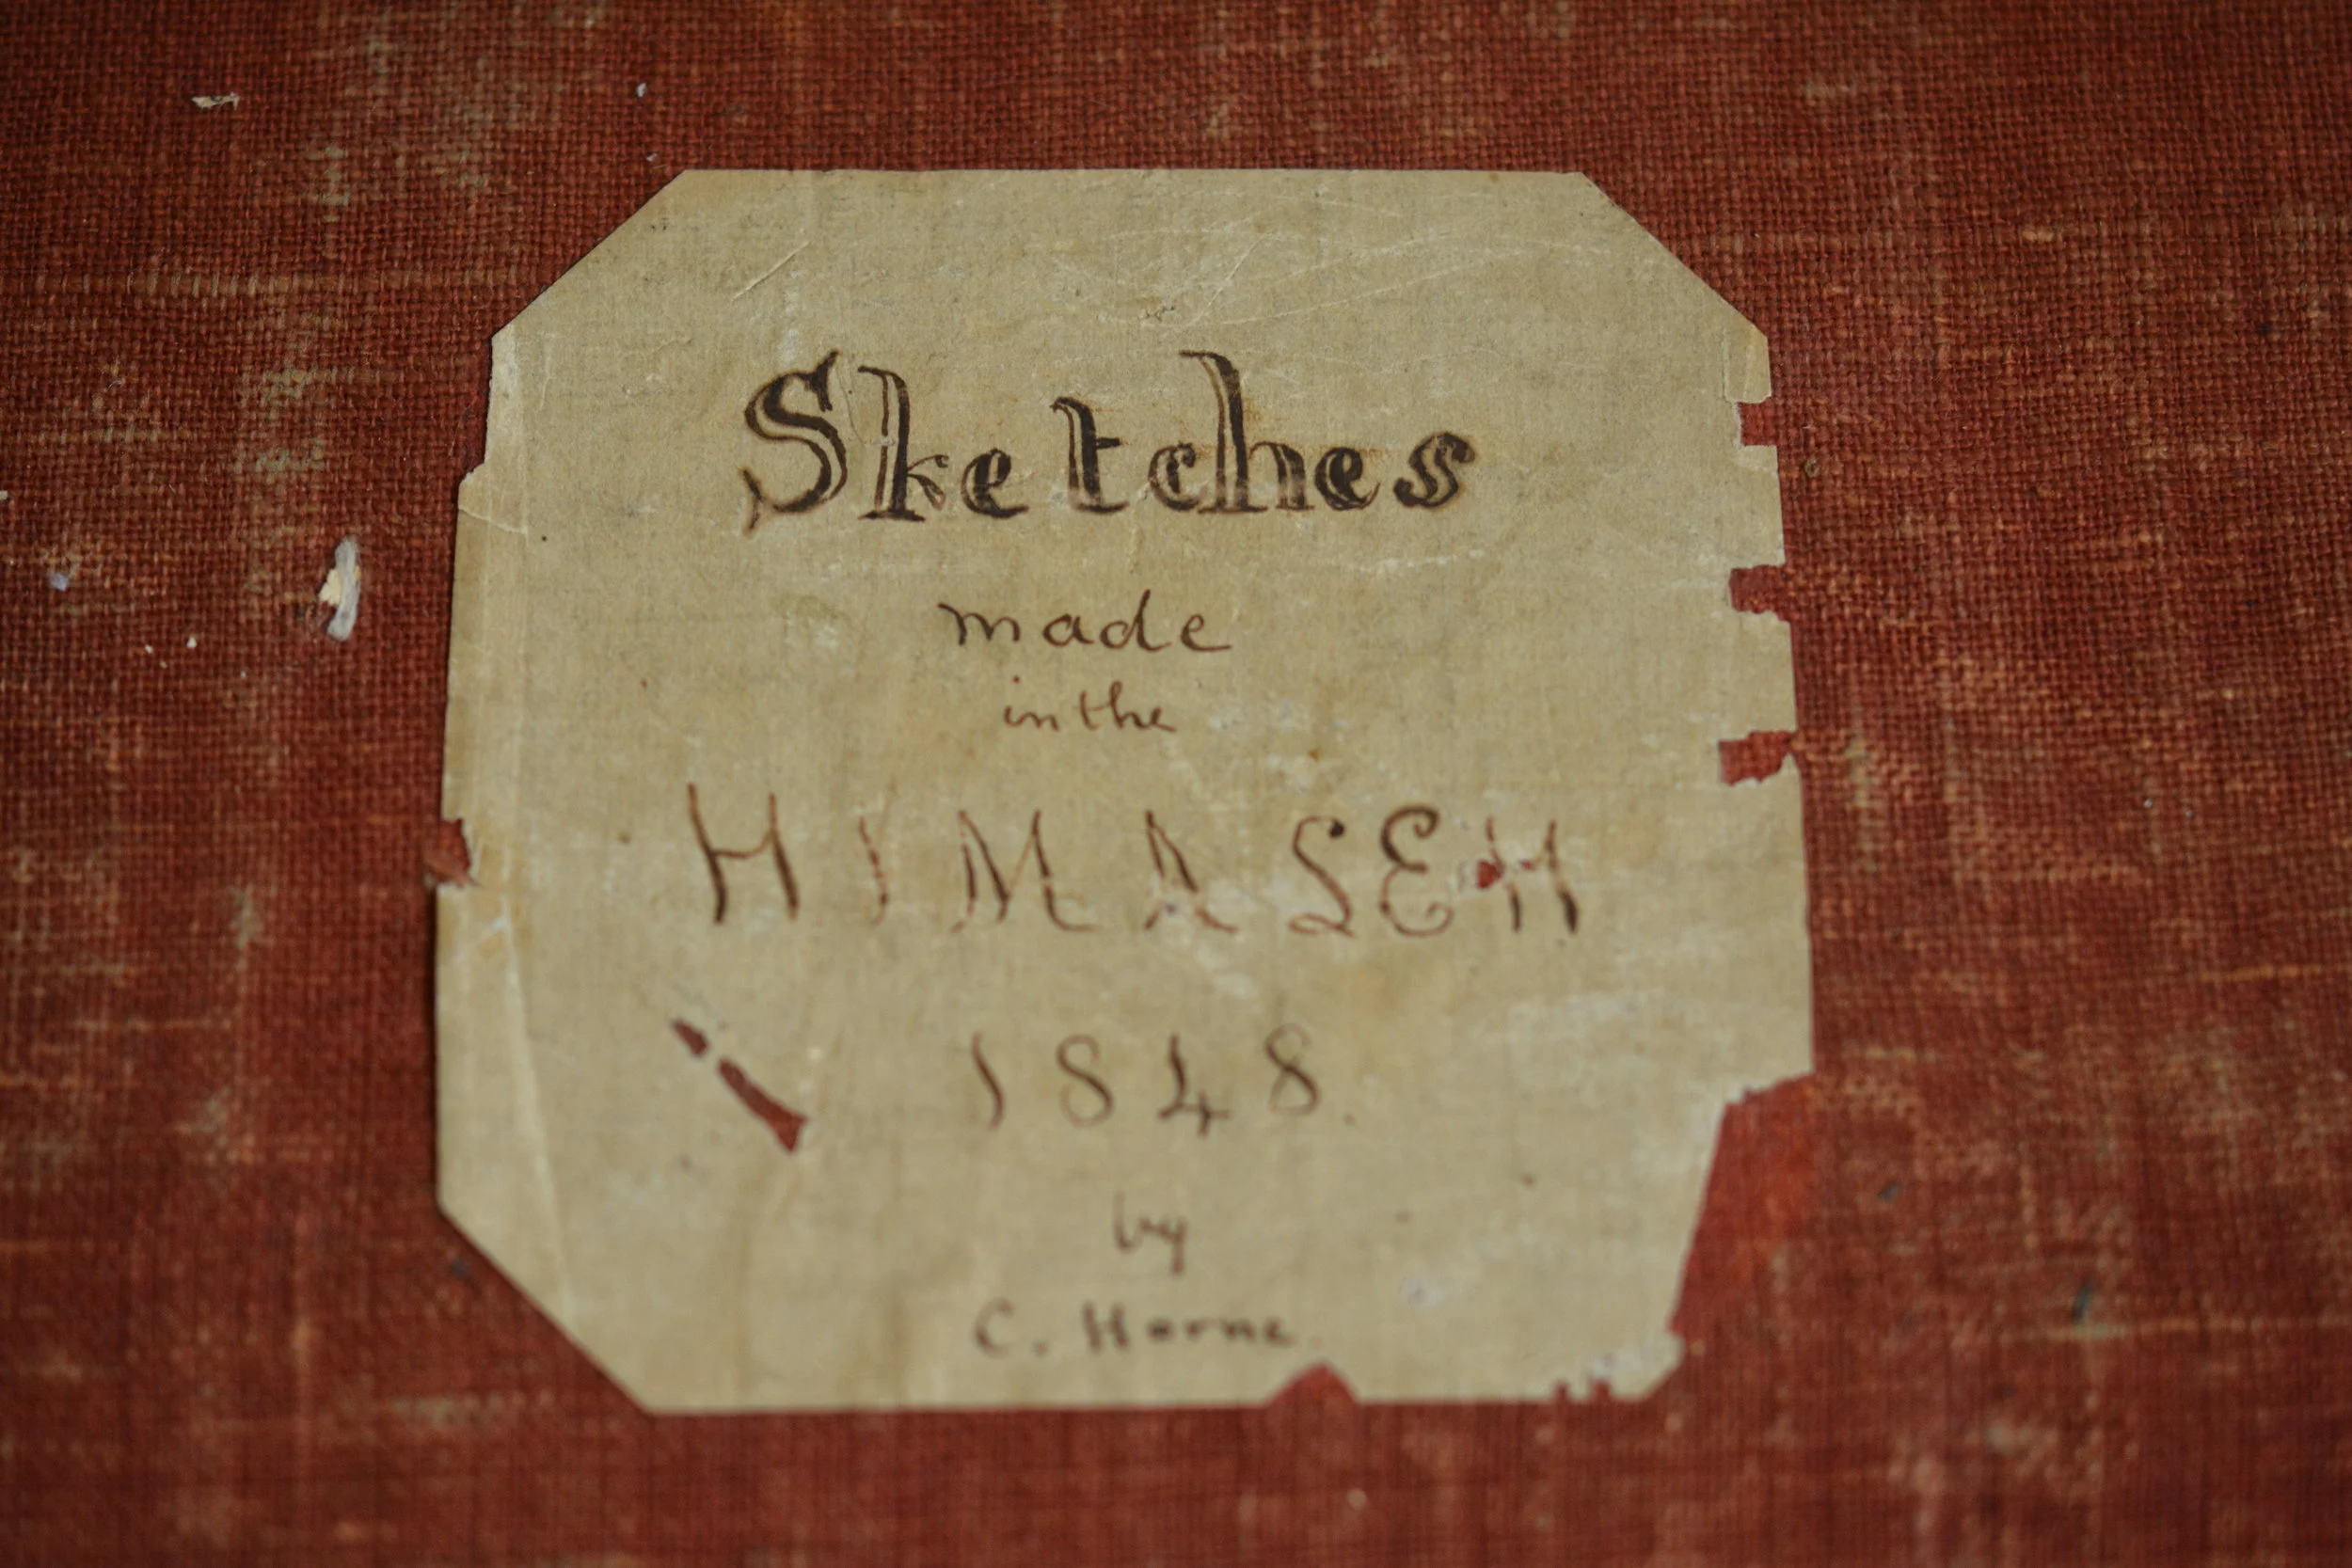 Sketches
made
in the
HIMALEH
1848.
by
C. Horne.